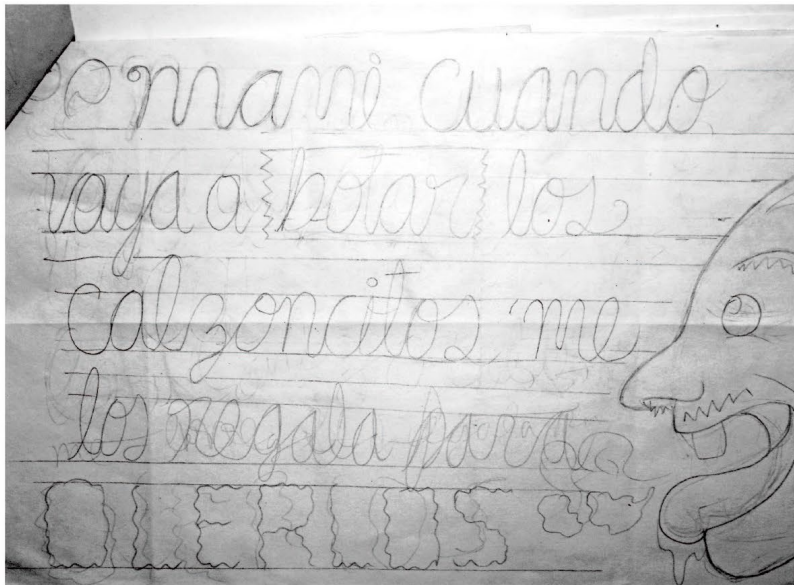 “mami cuando
vaya a botar los
calzoncitos me
los regala para
OLERLOS”